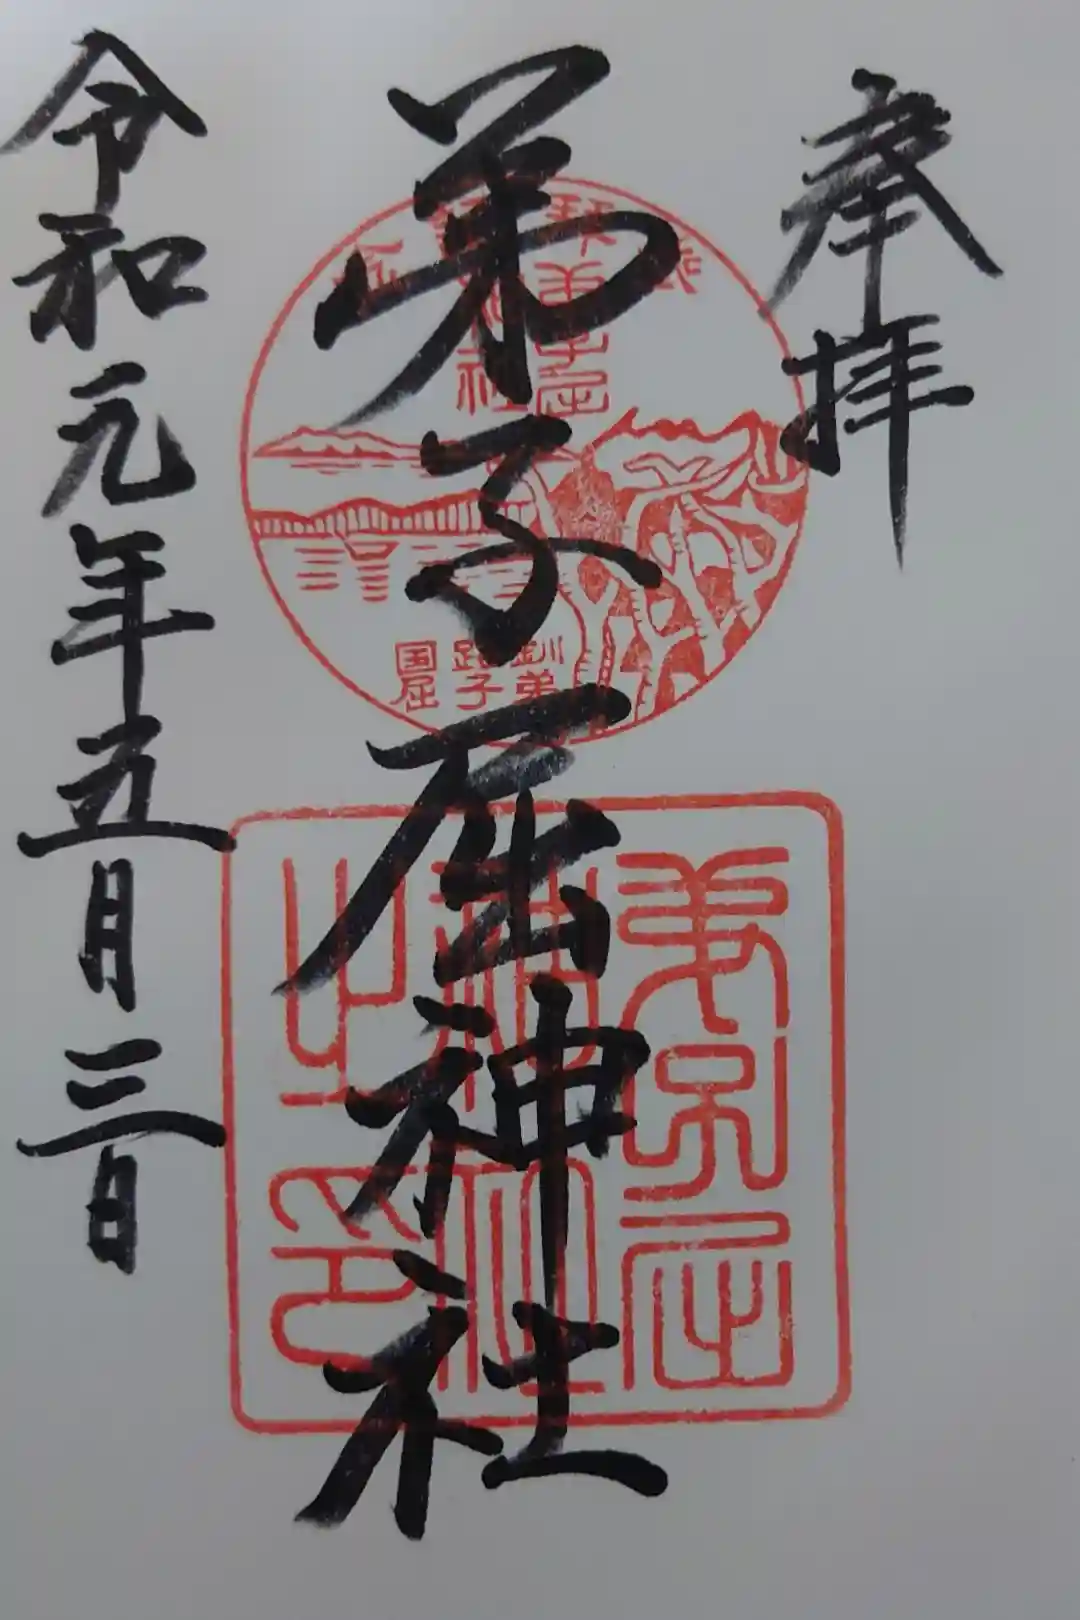 奉拝
弟子屈神社
令和元年五月三日
弟子屈
神社
之印
釧弟
路子
国屈
弟子屈
神社